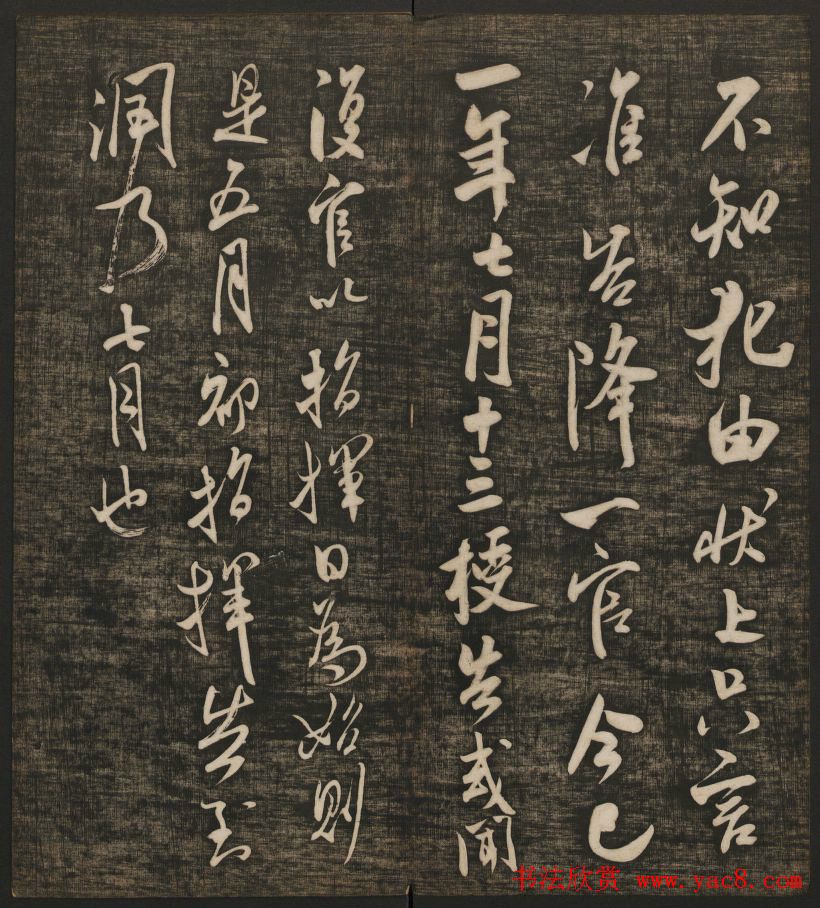 不知犯由状上只言
准告降一官今已
一年七月十三授告或聞
復官以指揮日為始則
是五月初指揮告到
潤乃七月也
书法欣赏 www.yac8.com